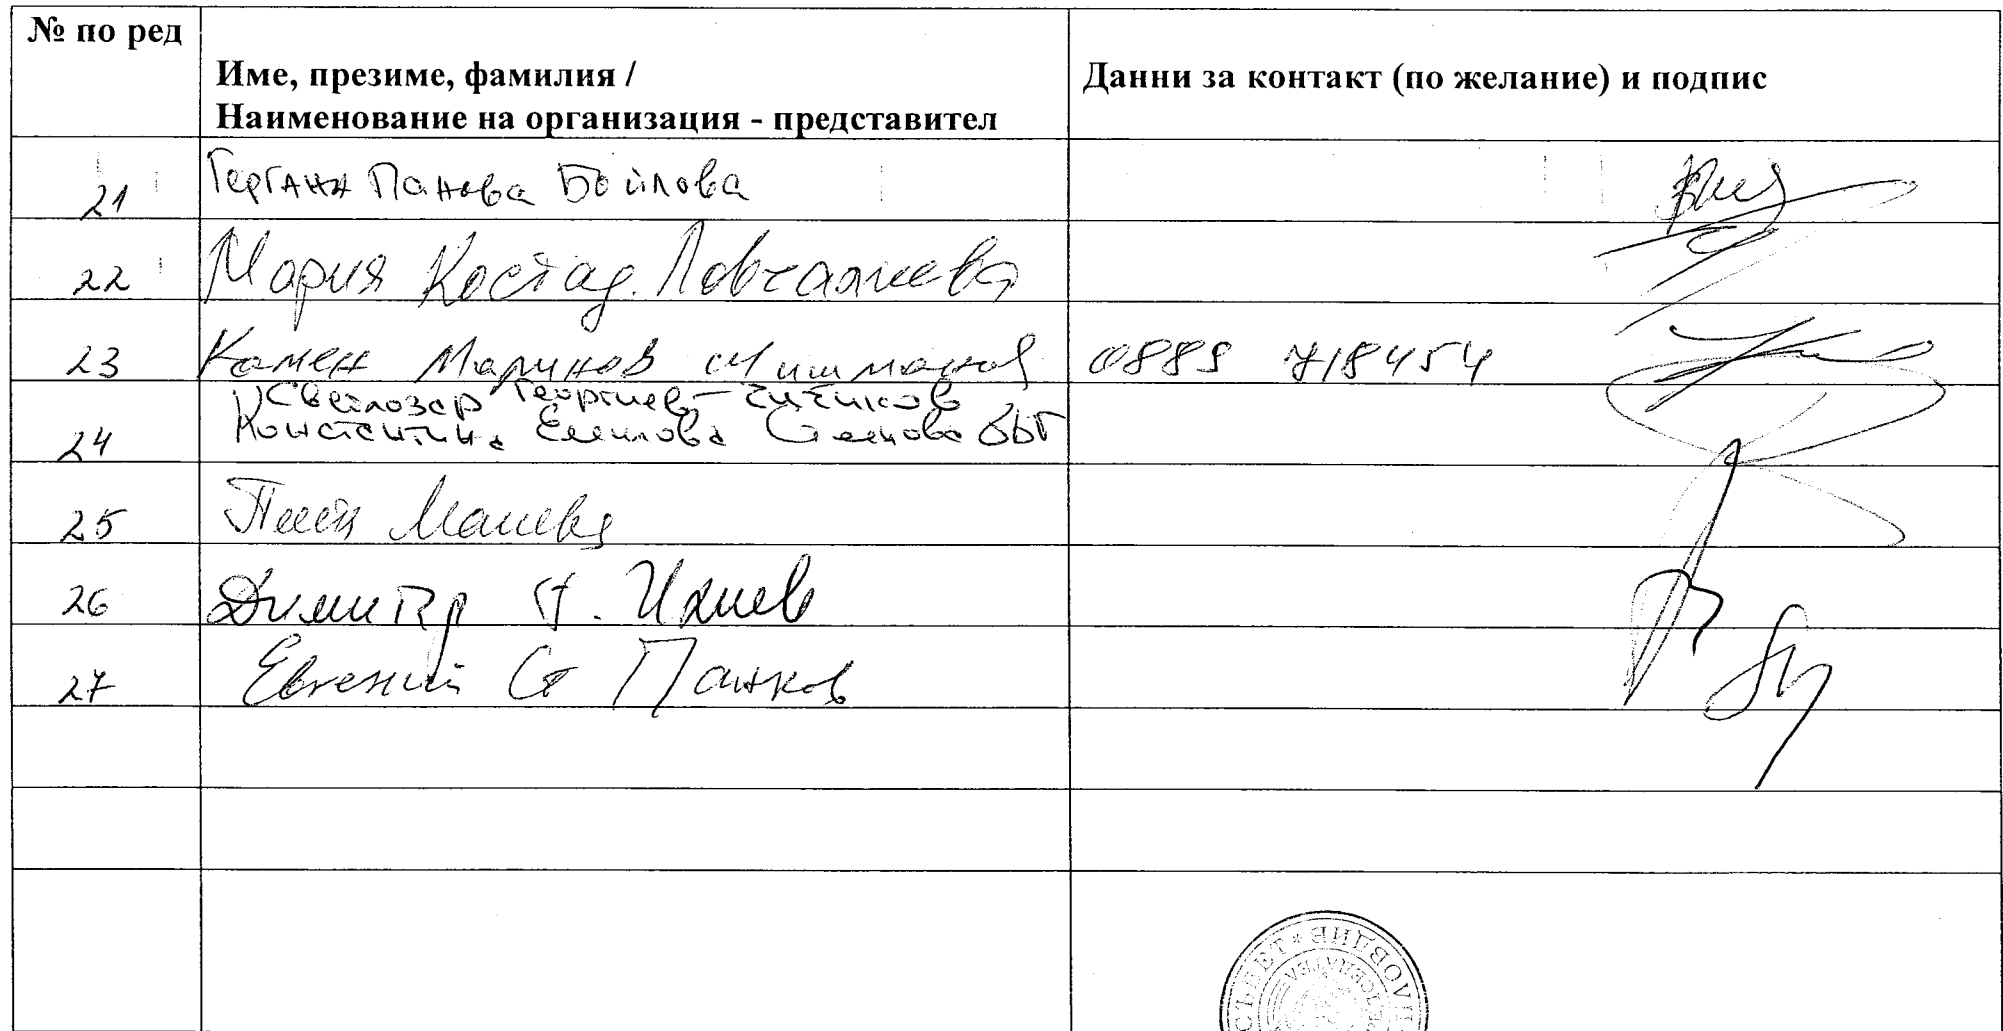 № по ред
Име, презиме, фамилия /
Наименование на организация - представител
Данни за контакт (по желание) и подпис
21 Гергана Панова Бойлова
22 Мария Костад. Ловчалиева
23 Камен Маринов Шишманов 0889 718454
Светлозар Георгиев - Чичиков
24 Константина Емилова ББГ
25 Машева
26 Димитър Илиев
27 Евгений Ст Панков
СЪВЕТ * ПЛОВДИВ
ПРЕДСЕДАТЕЛ